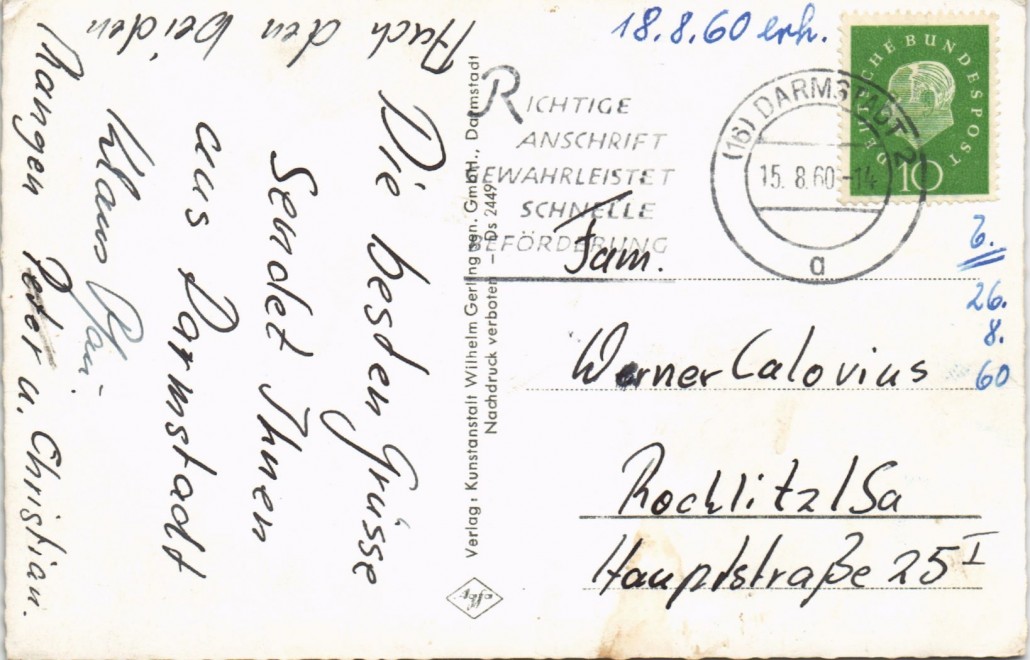 Die besten Grüsse
Sendet Ihnen
aus Darmstadt
Klaus
Auch den beiden
Rangen Peter u. Christian.
Verlag: Kunstanstalt Wilhelm Gerling gen. GmbH., Darmstadt
Nachdruck verboten – Ds 2449
18.8.60 erh.
RICHTIGE
ANSCHRIFT
GEWAHRLEISTET
SCHNELLE
BEFÖRDERUNG
(16) DARMSTADT 2
15. 8. 60 –14
a
DEUTSCHE BUNDESPOST
10
26.
8.
60
Fam.
Werner Calovius
Rochlitz/Sa
Hauptstraße 25 I